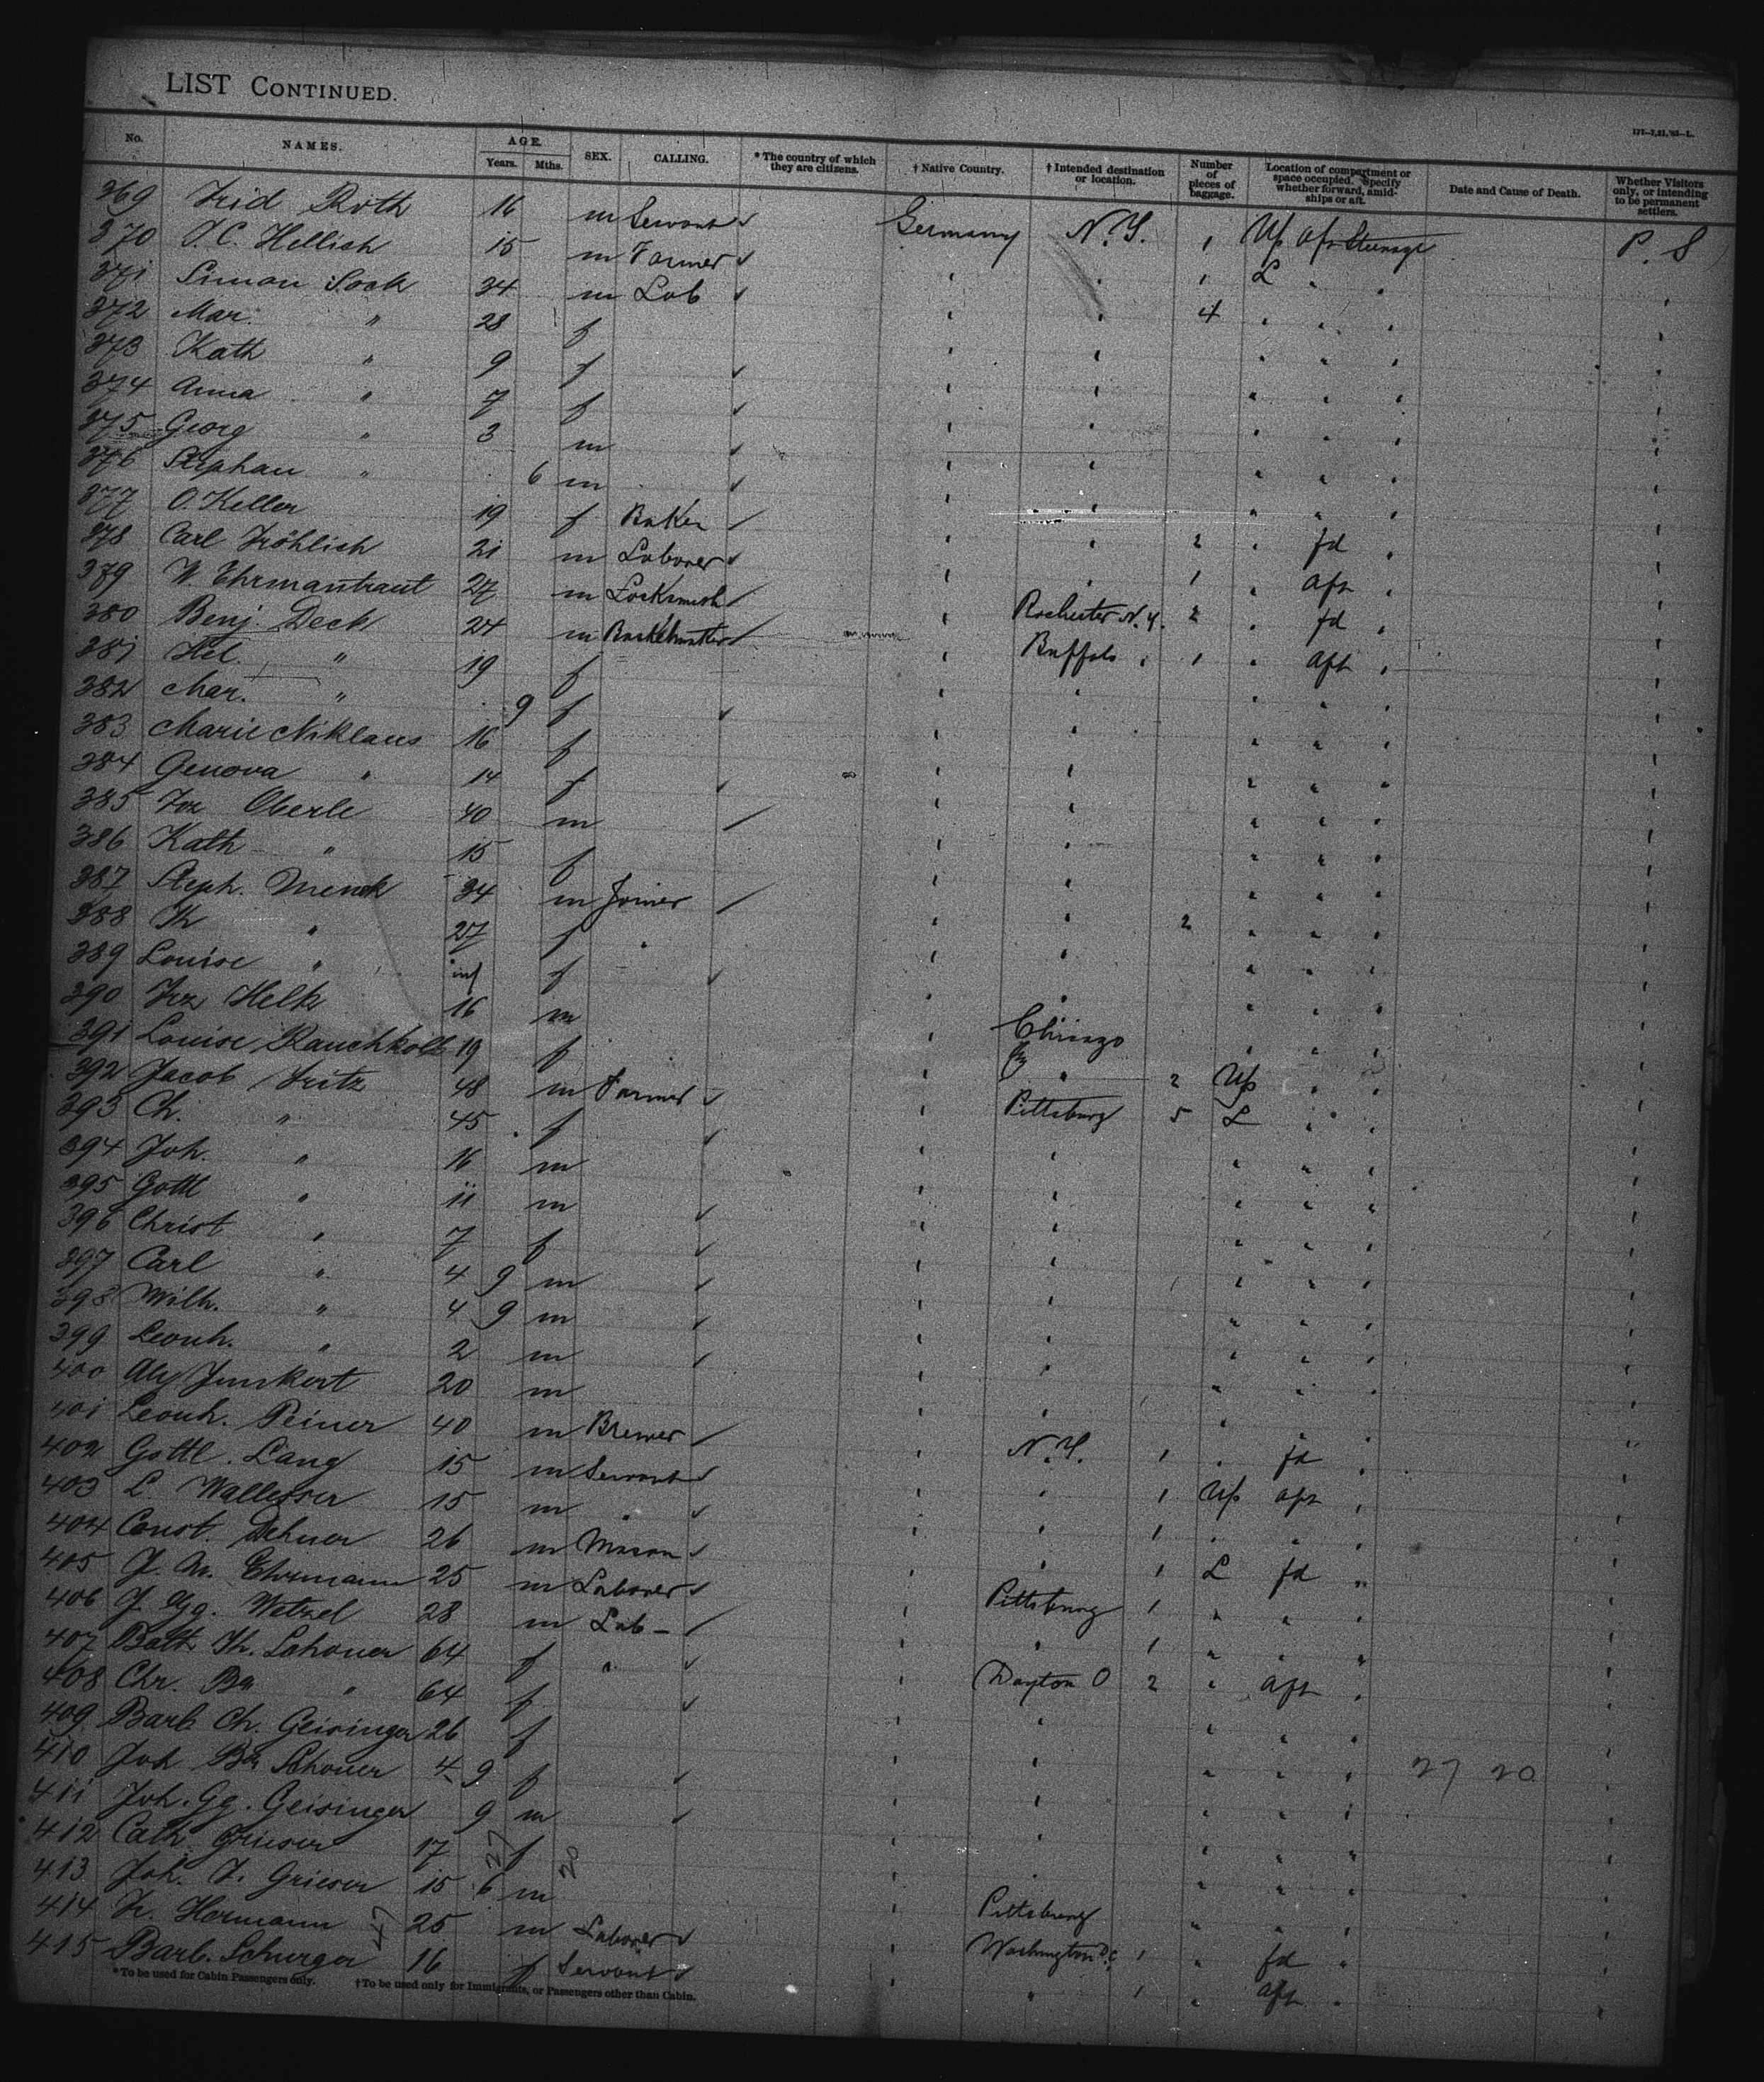 LIST CONTINUED.
117—7,21,'85—L.
No. NAMES. AGE. Years. Mths. SEX. CALLING. * The country of which they are citizens. † Native Country. † Intended destination or location. Number of pieces of baggage. Location of compartment or space occupied. Specify whether forward, amidships or aft. Date and Cause of Death. Whether Visitors only, or intending to be permanent settlers.
369 Frid Roth 16 m Servant Germany N.Y. 1 Up aft Steerage P. S
370 J. C. Hellish 15 m Farmer " " 1 L " "
371 Simon Sook 34 m Lab " " 4 " " "
372 Mar. " 28 f
373 Kath " 9 f
374 Anna " 7 f
375 Georg " 3 m
376 Stephan " 6 m
377 O. Keller 19 f Baker " " 2 " fd "
378 Carl Fröhlich 21 m Laborer " " 1 " aft "
379 W. Ehrmantraut 27 m Locksmith " Rochester N.Y. 2 " fd "
380 Benj. Deck 24 m " Buffalo " 1 " aft "
381 Hel. " 19 f
382 Mar. " 9 f
383 Marie Niklaus 16 f
384 Genova " 14 f
385 Frz Oberle 40 m
386 Kath " 15 f
387 Steph. Menck 34 m Joiner " " 2 " " "
388 Th " 27 f "
389 Louise " inf f
390 Frz Helk 16 m " Chicago
391 Louise Rauchkolb 19 f " " 2 Up " "
392 Jacob Fritz 48 m Farmer " Pittsburg 5 L " "
393 Ch. " 45 f
394 Joh. " 16 m
395 Gottl " 11 m
396 Christ " 7 f
397 Carl " 4 9 m
398 Wilh. " 4 9 m
399 Leonh. " 2 m
400 Alex Junkert 20 m
401 Leonh. Peiner 40 m Brewer " N.Y. 1 " fd "
402 Gottl. Lang 15 m Servant " " 1 Up aft "
403 L Wallesser 15 m " " " 1 " " "
404 Const. Dehner 26 m Mason " " 1 L fd "
405 J. M. Ehrmann 25 m Laborer " Pittsburg 1 " " "
406 J. Gg. Wetzel 28 m Lab — " " 1 " " "
407 Bath Th. Schouer 64 f " " Dayton O 2 " aft "
408 Chr. Ba " 64 f
409 Barb Ch. Geisinger 26 f
410 Joh Schouer 4 9 f 27 20
411 Joh. Gg. Geisinger 9 m
412 Cath. Grieser 17 f 27 20
413 Joh. F. Grieser 15 6 m " Pittsburg
414 Fr. Hermann 47 25 m Laborer " Washington D.C. 1 " fd "
415 Barb. Schurger 16 f Servant " " 1 " aft "
* To be used for Cabin Passengers only. † To be used only for Immigrants, or Passengers other than Cabin.